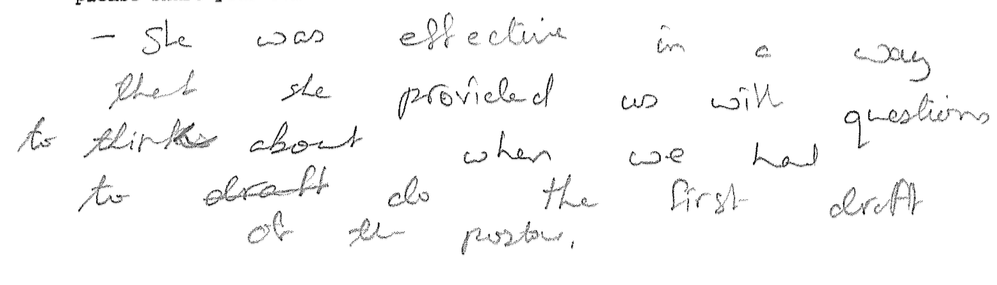 - She was effective in a way
that she provided us with questions
to think about when we had
to draft do the first draft
of the poster.